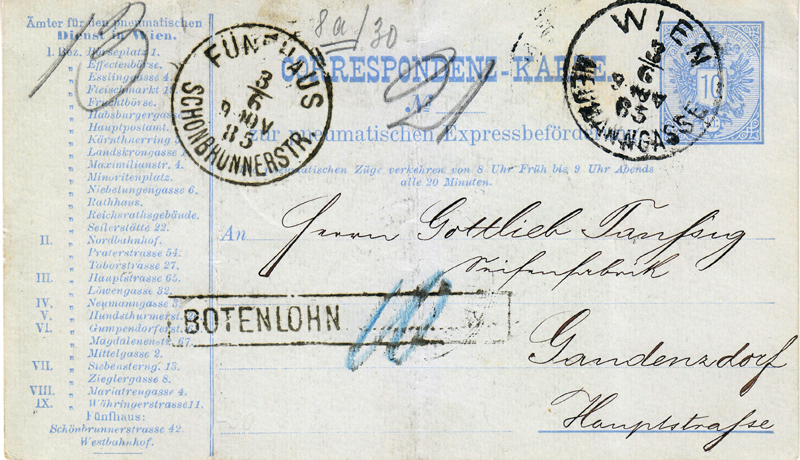 13
8a/30
21
Ämter für den pneumatischen
Dienst in Wien.
I. Bez. Börseplatz 1.
" Effectenbörse.
" Esslinggasse 4.
" Fleischmarkt 19
" Fruchtbörse.
" Habsburgergasse
" Hauptpostamt.
" Kärnthnerring 3
" Landskrongasse 1
" Maximilianstr. 4.
" Minoritenplatz.
" Niebelungengasse 6.
" Rathhaus.
" Reichsrathsgebäude.
" Seilerstätte 22.
II. Nordbahnhof.
" Praterstrasse 54.
" Taborstrasse 27.
III. Hauptstrasse 65.
" Löwengasse 32.
IV. Neumanngasse 3
V. Hundsthurmerst.
VI. Gumpendorferst.
" Magdalenenstr. 67.
" Mittelgasse 2.
VII. Siebensterng. 13.
" Zieglergasse 8.
VIII. Mariatreugasse 4.
IX. Währingerstrasse 11.
Fünfhaus:
Schönbrunnerstrasse 42.
Westbahnhof.
FÜNFHAUS
3/6
9 NOV
85
SCHÖNBRUNNERSTR.
WIEN
3/6
9 NOV
85
NEUMANNGASSE
10
CORRESPONDENZ-KARTE
№
zur pneumatischen Expressbeförderung
Die pneumatischen Züge verkehren von 8 Uhr Früh bis 9 Uhr Abends
alle 20 Minuten.
An Herrn Gottlieb Taussig
Seifenfabrik
BOTENLOHN
10
Gaudenzdorf
Hauptstrasse